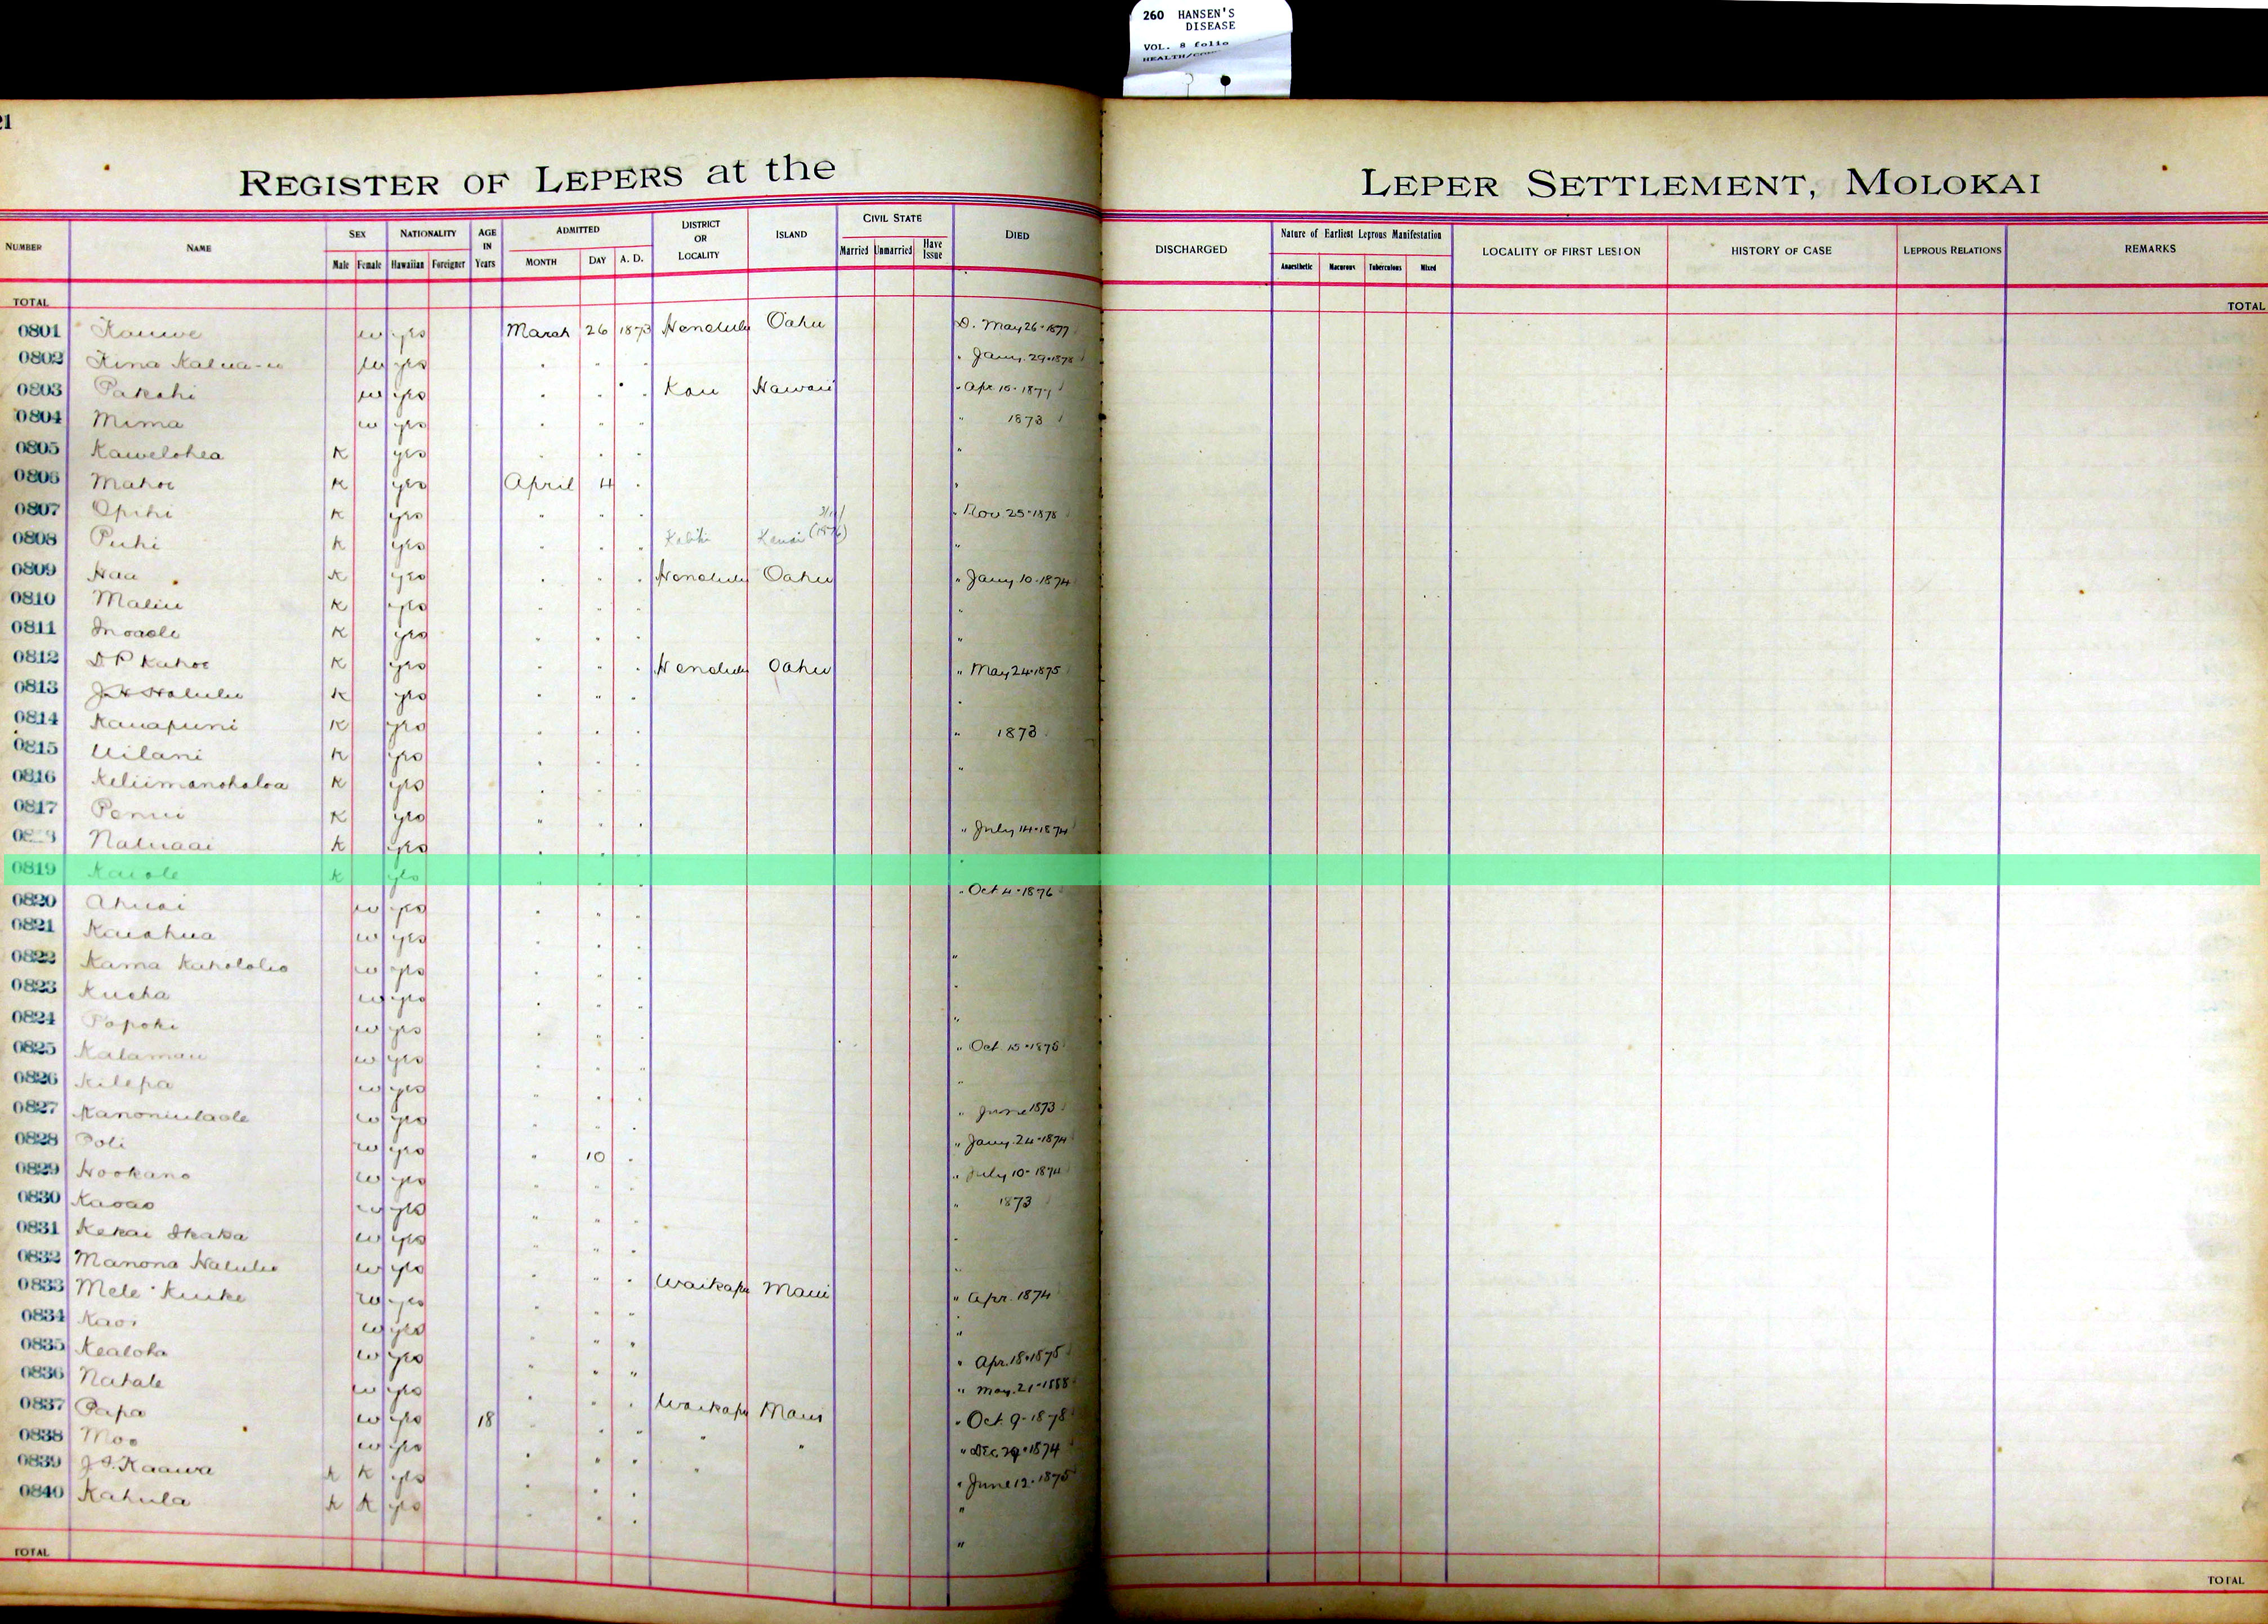 260 HANSEN'S
DISEASE
VOL. 8 folio
21
REGISTER OF LEPERS at the LEPER SETTLEMENT, MOLOKAI
NUMBER NAME SEX NATIONALITY AGE IN Years ADMITTED DISTRICT OR LOCALITY ISLAND CIVIL STATE DIED DISCHARGED Nature of Earliest Leprous Manifestation LOCALITY OF FIRST LESION HISTORY OF CASE LEPROUS RELATIONS REMARKS
Male Female Hawaiian Foreigner MONTH DAY A. D. Married Unmarried Have Issue Anaesthetic Macurous Tuberculous Mixed
TOTAL TOTAL
0801 Kauwe w yes March 26 1873 Honolulu Oahu D. May 26-1877
0802 Kina Kalua-u w yes " " " " Jany. 29-1878
0803 Pakahi w yes " " " Kau Hawaii " Apr 10-1877
0804 Mima w yes " " " " 1873
0805 Kawelohea K yes " " " "
0806 Mahoe K yes April 4 " "
0807 Opihi K yes " " " " Nov 25-1878
0808 Puhi K yes " " " Kauai "
0809 Haa K yes " " " Honolulu Oahu " Jany 10-1874
0810 Maliu K yes " " " "
0811 Inoaole K yes " " " "
0812 D P Kahoe K yes " " " Honolulu Oahu " May 24-1875
0813 J H Halulu K yes " " " "
0814 Kauapuni K yes " " " " 1873
0815 Uilani K yes " " " "
0816 Keliimanohaloa K yes " "
0817 Penui K yes " " " " July 14-1874
Naluaai K yes " " " "
0819 Kaiole K yes " " " " Oct 4-1876
0820 Ahuai w yes " " "
0821 Kaiahua w yes " " " "
0822 Kama Kahololio w yes " " " "
0823 Kueha w yes " " " "
0824 Popoki w yes " " " " Oct. 15-1878
0825 Kalamau w yes " " " "
0826 Kilepa w yes " " " " June 1873
0827 Kanoniulaole w yes " " " " Jany. 24-1874
0828 Poli w yes " 10 " " July 10-1874
0829 Hookano w yes " " " " 1873
0830 Kaoao w yes " " " "
0831 Kekai Ikaka w yes " " " "
0832 Manona Halulu w yes " " " Waikapu Maui " Apr. 1874
0833 Mele Kuike w yes " " " "
0834 Kaoi w yes " " " " Apr. 18-1875
0835 Kealoha w yes " " " " May. 21-1888
0836 Nahale w yes " " " Waikapu Maui " Oct. 9-1878
0837 Papa w yes 18 " " " " " " Dec 29-1874
0838 Moo w yes " " " " " June 12-1875
0839 J. S. Kaawa K K yes " " " "
0840 Kahula K K yes " " " "
TOTAL TOTAL